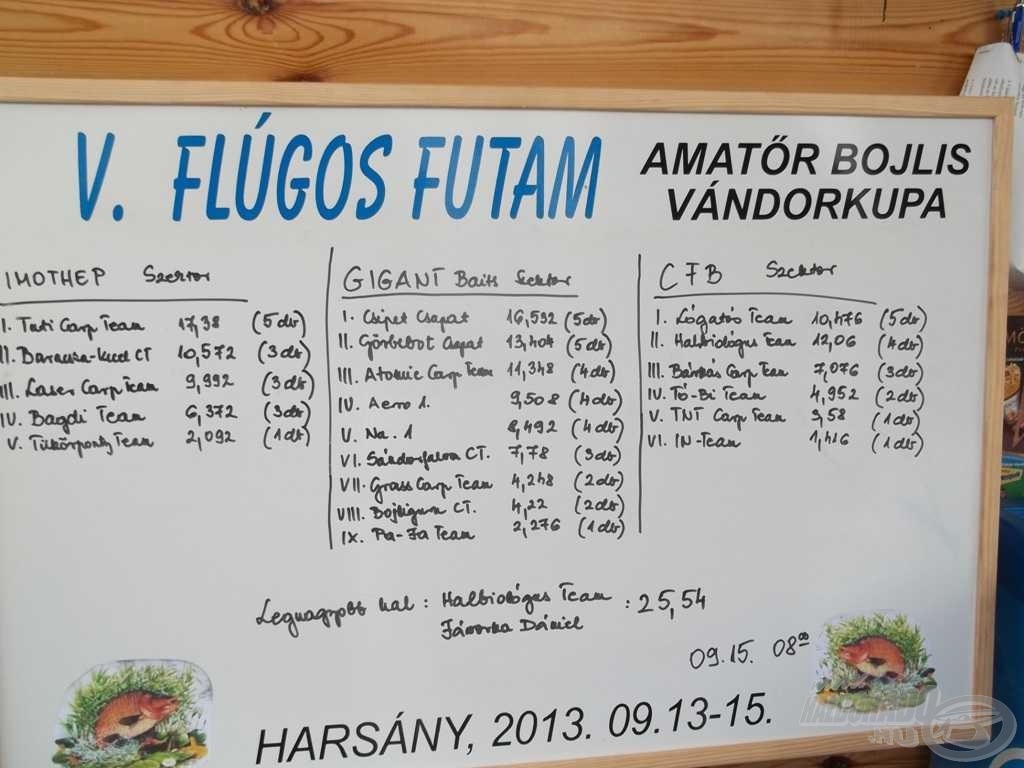 V. FLÚGOS FUTAM
AMATŐR BOJLIS
VÁNDORKUPA
IMOTHEP Szektor
I. Tuti Carp Team 17,38 (5db)
II. CT 10,572 (3db)
III. Laser Carp Team 9,992 (3db)
IV. Bagdi Team 6,372 (3db)
V. Tükörponty Team 2,092 (1db)
GIGANT Baits Szektor
I. Csipet Csapat 16,592 (5db)
II. Görbebot Csapat 13,404 (5db)
III. Atomic Carp Team 11,348 (4db)
IV. Aero 1. 9,508 (4db)
V. No. 1 8,492 (4db)
VI. Sándorfalva CT. 7,78 (3db)
VII. Grass Carp Team 4,248 (2db)
VIII. CT. 4,22 (2db)
IX. Pa-Fa Team 2,276 (1db)
CFB Szektor
I. Lógatós Team 10,476 (5db)
II. Halbiológus Team 12,06 (4db)
III. Bárbás Carp Team 7,076 (3db)
IV. Tó-Bi Team 4,952 (2db)
V. TNT Carp Team 3,58 (1db)
VI. IN-Team 1,416 (1db)
Legnagyobb hal : Halbiológus Team : 25,54
Jávorka Dániel
09.15. 08⁰⁰
HARSÁNY, 2013. 09.13-15.